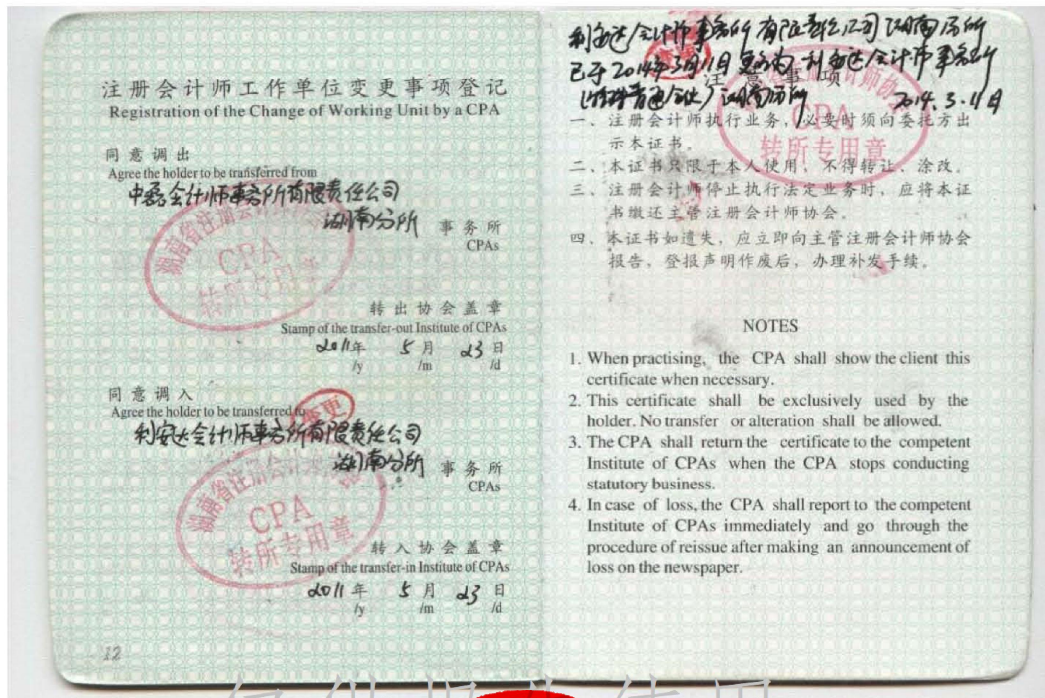 注册会计师工作单位变更事项登记
Registration of the Change of Working Unit by a CPA
同意调出
Agree the holder to be transferred from
中磊会计师事务所有限责任公司
湖南分所 事务所
CPAs
湖南省注册会计师
CPA
转所专用章
转出协会盖章
Stamp of the transfer-out Institute of CPAs
2011年 5月 23日
/y /m /d
同意调入
Agree the holder to be transferred to
变更
利安达会计师事务所有限责任公司
湖南分所 事务所
CPAs
湖南省注册会计师
CPA
转所专用章
转入协会盖章
Stamp of the transfer-in Institute of CPAs
2011年 5月 23日
/y /m /d
12
利安达会计师事务所有限责任公司湖南分所
已于2014年3月11日更名为利安达会计师事务所
(特殊普通合伙)湖南分所 2014.3.11日
注意事项
CPA
转所专用章
一、注册会计师执行业务,必要时须向委托方出
示本证书。
二、本证书只限于本人使用,不得转让、涂改。
三、注册会计师停止执行法定业务时,应将本证
书缴还主管注册会计师协会。
四、本证书如遗失,应立即向主管注册会计师协会
报告,登报声明作废后,办理补发手续。
NOTES
1. When practising, the CPA shall show the client this
certificate when necessary.
2. This certificate shall be exclusively used by the
holder. No transfer or alteration shall be allowed.
3. The CPA shall return the certificate to the competent
Institute of CPAs when the CPA stops conducting
statutory business.
4. In case of loss, the CPA shall report to the competent
Institute of CPAs immediately and go through the
procedure of reissue after making an announcement of
loss on the newspaper.